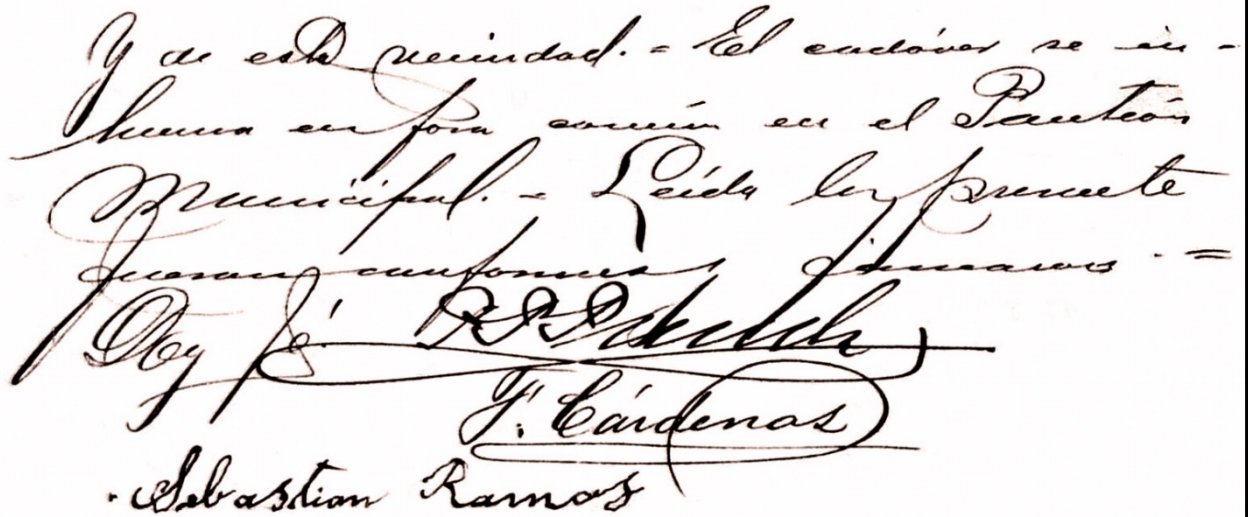 y de esta vecindad. = El cadáver se in-
huma en fosa común en el Panteón
Municipal. = Leída la presente
fueron conformes y firmaron. =
Doy fé.
F. Cárdenas
Sebastian Ramos